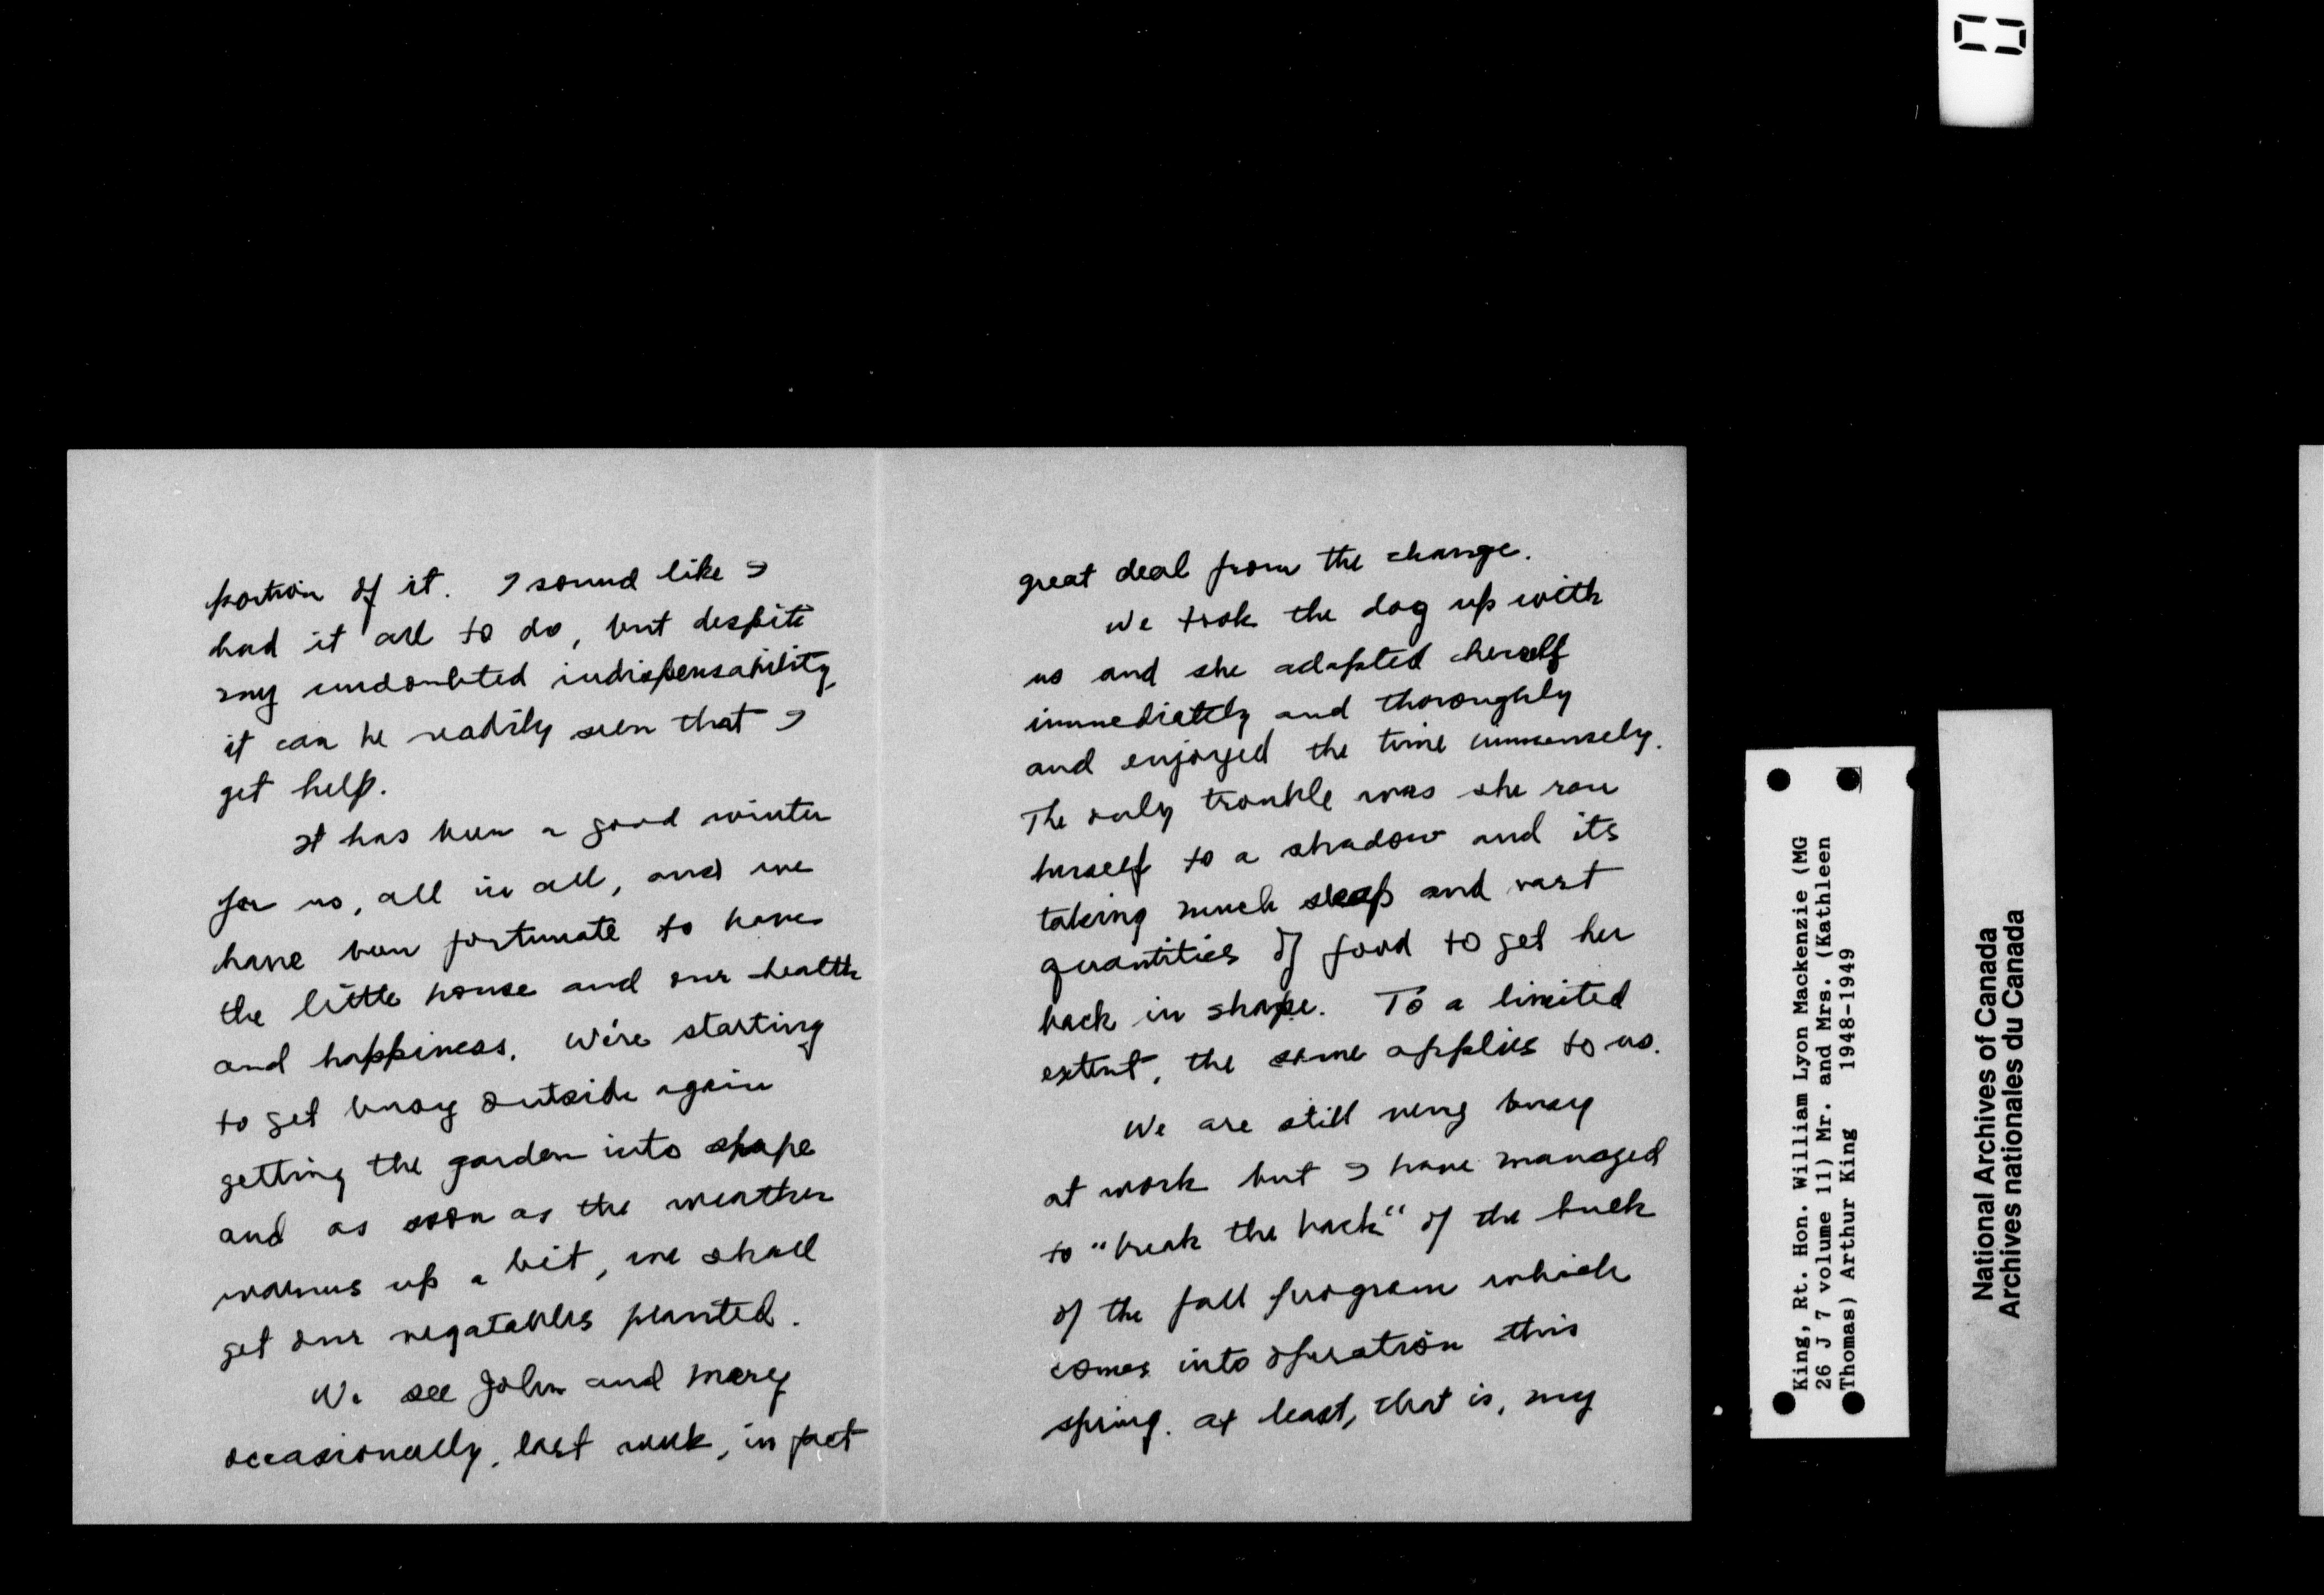 portion of it. I sound like I
had it all to do, but despite
my undoubted indispensability
it can be readily seen that I
get help.
It has been a good winter
for us, all in all, and we
have been fortunate to have
the little house and our health
and happiness. We're starting
to get busy outside again
getting the garden into shape
and as soon as the weather
warms up a bit, we shall
get our vegatables planted.
We see John and Mary
occasionally, last week, in fact
great deal from the change.
We took the dog up with
us and she adapted herself
immediately and thoroughly
and enjoyed the time immensely.
The only trouble was she ran
herself to a shadow and its
taking much sleep and vast
quantities of food to get her
back in shape. To a limited
extent, the same applies to us.
We are still very busy
at work but I have managed
to "break the back" of the bulk
of the fall program which
comes into operation this
spring. At least, that is, my
King, Rt. Hon. William Lyon Mackenzie (MG
26 J 7 volume 11) Mr. and Mrs. (Kathleen
Thomas) Arthur King 1948-1949
National Archives of Canada
Archives nationales du Canada